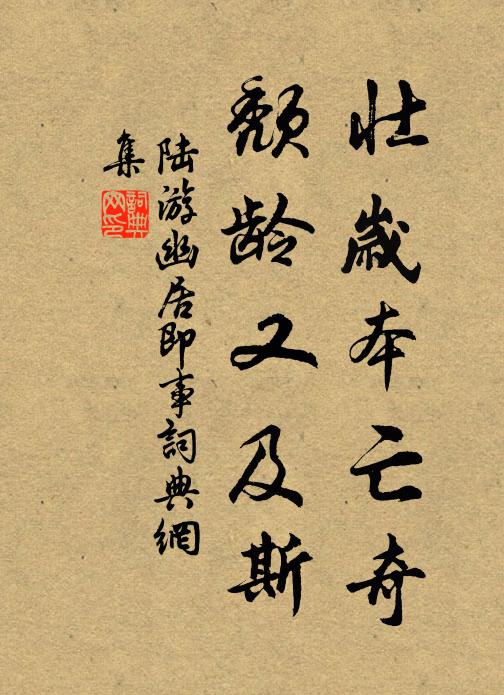 壮岁本亡奇
颓龄又及斯
陆游幽居即事詞典網
集
詞典网印